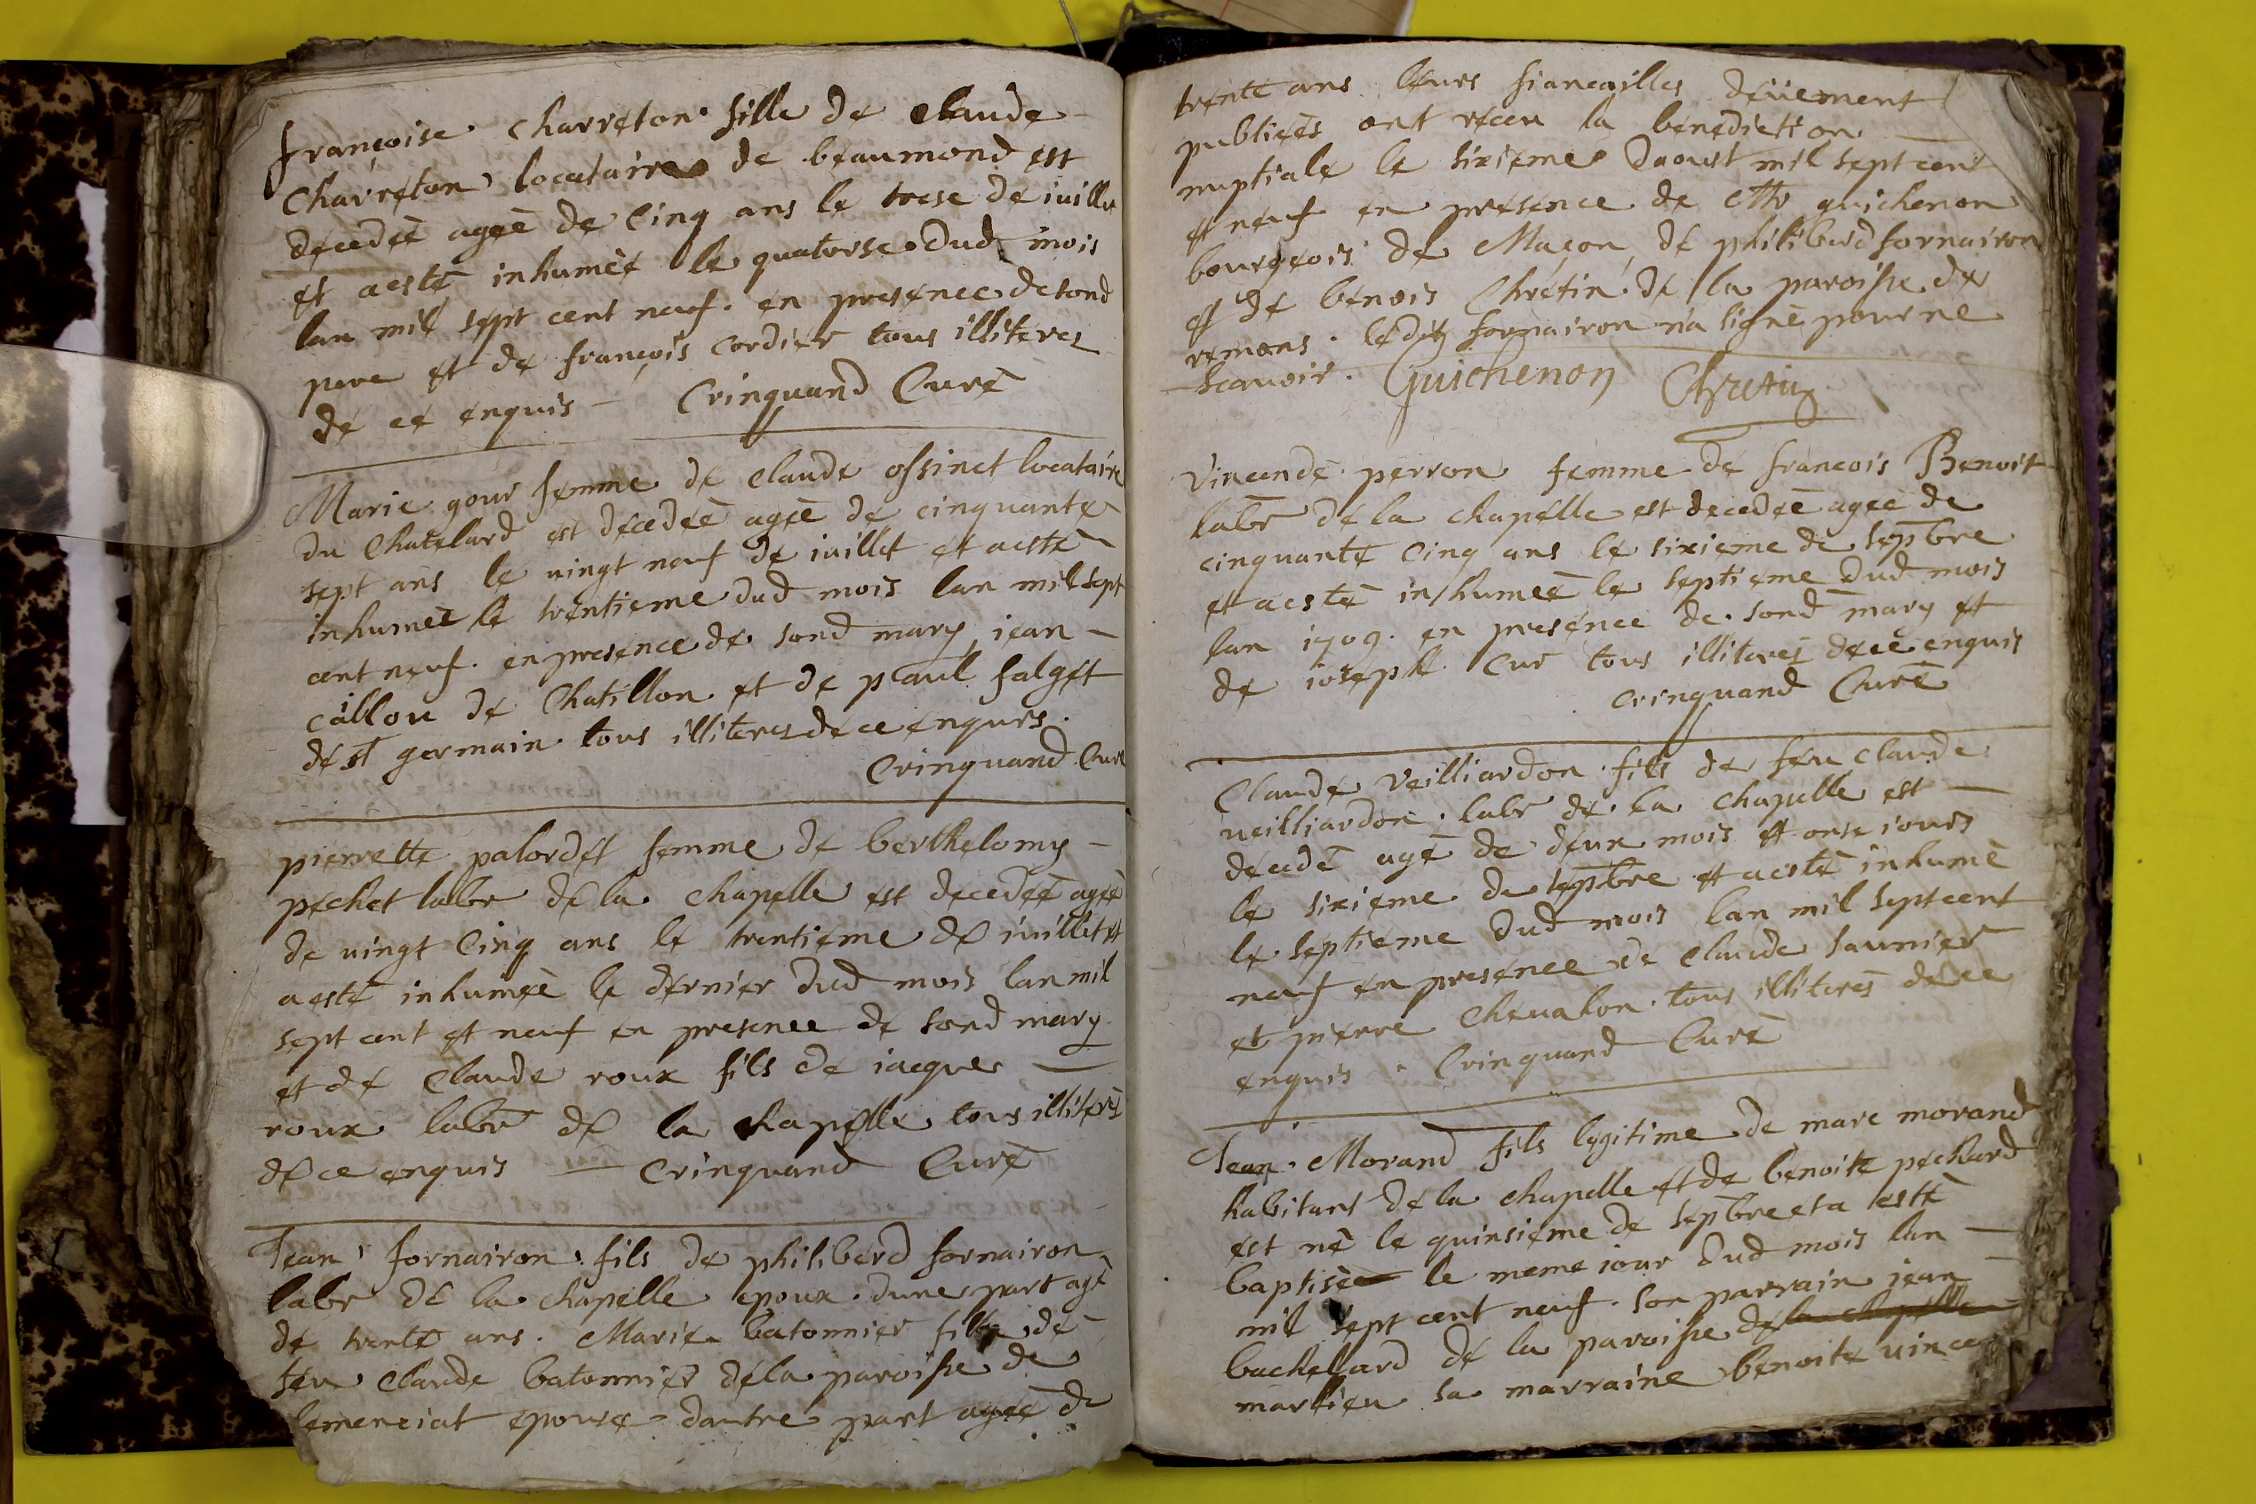 françoise charreton fille de claude
charreton locataire de béaumond est
décedéé agéé de cinq ans le trese de iuillet
et aesté inhuméé le quatorse dud mois
lan mil sept cent neuf. en presence de sond
pere et de françois cordier tous illiteres
de ce enquis – Crinquand Curé
Marie gour femme de claude ossinet locataire
du Chatelard est décedéé agéé de cinquante
sept ans le vingt neuf de iuillet et aesté
inhuméé le trentieme dud mois lan mil sept
cent neuf. en presence de sond mary, jean –
caillou de Chatillon et de paul falget
de st germain tous illiteres de ce enquis.
Crinquand Curé
pierrette palordet femme de berthelomy –
pechet labr de la chapelle est decedéé agéé
de vingt cinq ans le trentieme de iuillet et
aesté inhuméé le dernier dud mois lan mil
sept cent et neuf en presence de sond mary
et de Claude roux fils de iacques –
roux labr de la chapelle tous illiteres
de ce enquis – Crinquand Curé
Jean fornairon fils de philiberd fornairon
labr de la chapelle epoux dune part agé
de trente ans. Marie batonnier fille de
feu claude batonnier de la paroisse de
lemenciat epouse dautre part agéé de
trente ans leurs fiancailles düement
publiéés ont réceu la bénediction
nuptiale le sixieme daoust mil sept cent
et neuf en presence de guichenon
bourgeois de Maçon, de philiberd fornairon
et de bénois Chrétin de la paroisse de
remans. lédit fornairon na signé pour ne
scauoir. Guichenon Chretin
Vincende perron femme de francois Benoit
labr de la chapelle est decedéé agéé de
cinquante cinq ans le sixieme de sepbre
et aesté inhuméé le septieme dud mois
lan 1709. en presence de sond mary et
de ioseph Cur tous illiteres de ce enquis
crinquand Curé
Claude Veilliardon fils de feu claude
veilliardon labr de la chapelle est –
décedé agé de deux mois et onse iours
le sixieme de sepbre et aesté inhumé
le septieme dud mois lan mil sept cent
neuf en presence de claude saunier
et pierre cheualon tous illiteres de ce
enquis. Crinquand Curé
Jean Morand fils lygitime de marc morand
habitant de la chapelle et de benoite pechard
est né le quinsieme de sepbre et a esté
baptisé le meme iour dud mois lan –
mil sept cent neuf. son parrain jean
bachellard de la paroisse de la chapelle
marlieu sa marraine benoite